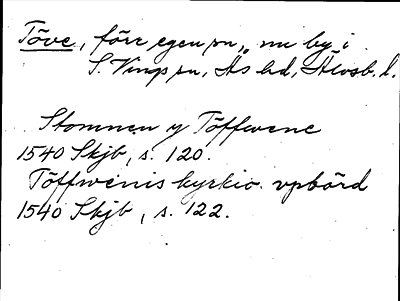 Töve, förr egen sn, nu by i
S. Vings sn, Ås hd, Älvsb. l.
Stomnen y Töffwene
1540 Skjb, s. 120.
Töffwenis kyrkio vpbörd
1540 Skjb, s. 122.